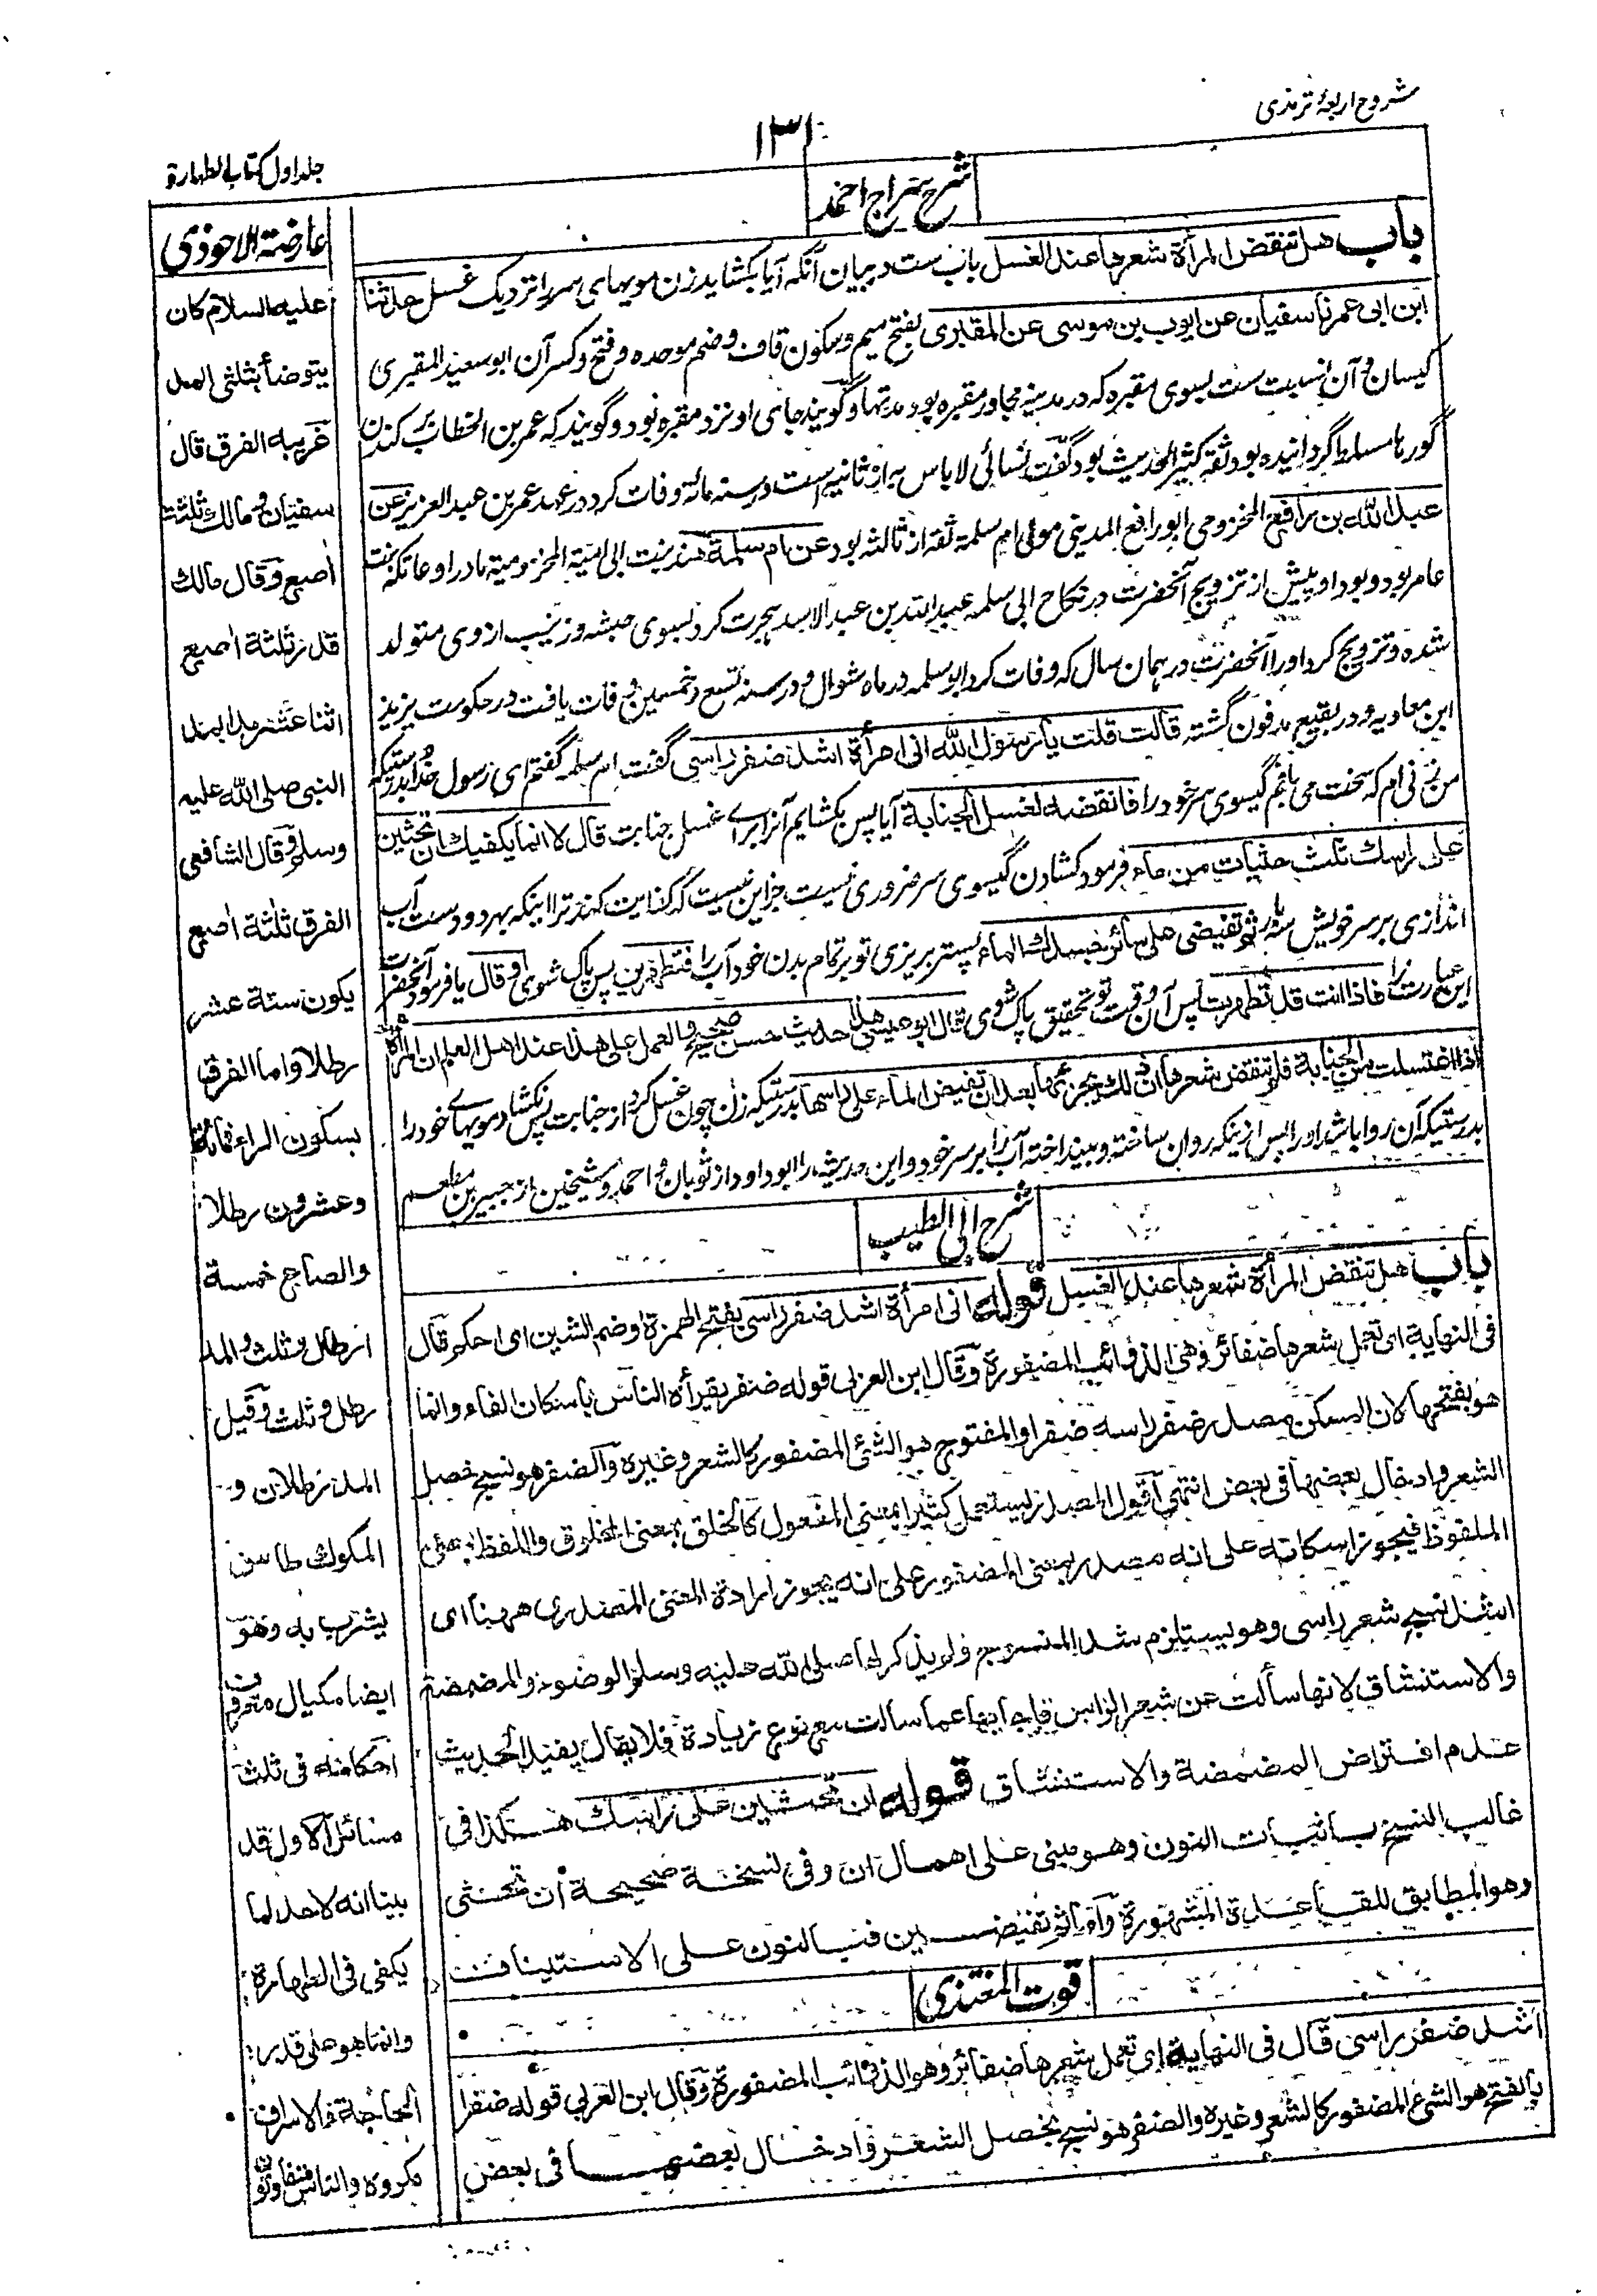 شروح اربعهٔ ترمذی
۱۳۱
جلد اول کتاب الطهارة
شرح سراج احمد
باب هل تنقض المرأة شعرها عند الغسل باب ست در بیان آنکه آیا بکشاید زن مویهای سر را نزدیک غسل حدثنا
ابن ابی عمر نا سفیان عن ایوب بن موسی عن المقبری بفتح میم و سکون قاف و ضم موحده و فتح و کسر آن ابو سعید المقبری
کیسان و آن نسبت ست بسوی مقبره که در مدینه مجاور مقبره بود مدتها و گویند جای او نزد مقبره بود و گویند که عمر بن الخطاب بر کندن
گورها مسلط گردانیده بود ثقه کثیر الحدیث بود گفت نسائی لا باس به از ثانیه است در سنه مائة وفات کرد در عهد عمر بن عبد العزیز عن
عبد الله بن رافع المخزومی ابو رافع المدینی مولی ام سلمة ثقه از ثالثه بود عن ام سلمة هند بنت ابی امیة المخزومیة مادر او عاتکه بنت
عامر بود و بود او پیش از تزویج آنحضرت در نکاح ابی سلمه عبد الله بن عبد الاسد هجرت کرد بسوی حبشه و زینب از وی متولد
شده و تزویج کرد او را آنحضرت در همان سال که وفات کرد ابو سلمه در ماه شوال و در سنه تسع و خمسین وفات یافت در حکومت یزید
ابن معاویه و در بقیع مدفون گشته قالت قلت یا رسول الله انی امرأة اشد ضفر راسی گفت ام سلمه گفتم ای رسول خدا بدرستیکه
من زنی ام که سخت می بافم گیسوی سر خود را فانقضه لغسل الجنابة آیا پس بکشایم آنرا برای غسل جنابت قال لا انما یکفیك ان تحثین
علی راسك ثلث حثیات من ماء فرمود کشادن گیسوی سر ضروری نیست جز این نیست که کفایت کند ترا اینکه بهر دو دست آب
اندازی بر سر خویش سه بار ثم تفیضی علی سائر جسدك الماء پستر بریزی تو بر تمام بدن خود آب را فتطهرین پس پاک شوی او قال یا فرمود آنحضرت
این عبارت را فاذا انت قد تطهرت پس آن وقت تو تحقیق پاک شوی قال ابو عیسی هذا حدیث حسن صحیح و العمل علی هذا عند اهل العلم ان المرأة
اذا اغتسلت من الجنابة فلم تنقض شعرها ان ذلك یجزئها بعد ان تفیض الماء علی راسها بدرستیکه زن چون غسل کرد از جنابت پس نکشاد مویهای خود را
بدرستیکه آن روا باشد او را پس از ینکه روان ساخته و بینداخته آب را بر سر خود و این حدیث را ابو داود از ثوبان و احمد و شیخین از جبیر بن مطعم
شرح ابی الطیب
باب هل تنقض المرأة شعرها عند الغسل قوله انی امرأة اشد ضفر راسی بفتح الهمزة و ضم الشین ای احکم قال
فی النهایة ای تعمل شعرها ضفائر وهی الذوائب المضفورة وقال ابن العربی قوله ضفر یقرأه الناس باسکان الفاء وانما
هو بفتحها لان المسکن مصدر ضفر راسه ضفرا والمفتوح هو الشئ المضفور کالشعر وغیره والضفر هو نسیج خصل
الشعر وادخال بعضها فی بعض انتهی اقول المصدر یستعمل کثیرا بمعنی المفعول کالخلق بمعنی المخلوق واللفظ بمعنی
الملفوظ فیجوز اسکانه علی انه مصدر بمعنی المضفور علی انه یجوز ارادة المعنی المصدری ههنا ای
اشد نسج شعر راسی وهو یستلزم شد المنسوج ولم یذکر لها صلی الله علیه وسلم الوضوء والمضمضة
والاستنشاق لانها سألت عن شعر الراس فاجابها عما سالت مع نوع زیادة فلا یقال یفید الحدیث
عدم افتراض المضمضة والاستنشاق قوله ان تحثین علی راسك هکذا فی
غالب النسخ باثبات النون وهو مبنی علی اهمال ان وفی نسخة صحیحة ان تحثی
وهو المطابق للقاعدة المشهورة واما ثم تفیضین فبالنون علی الاستیناف
قوت المغتذی
اشد ضفر راسی قال فی النهایة ای تعمل شعرها ضفائر وهو الذوائب المضفورة وقال ابن العربی قوله ضفرا
بالفتح هو الشئ المضفور کالشعر وغیره والضفر هو نسیج خصل الشعر وادخال بعضها فی بعض
عارضة الاحوذی
علیه السلام کان
یتوضأ بثلثی المد
غریبه الفرق قال
سفیان ومالك ثلثة
اصبع وقال مالك
قدر ثلثة اصبع
اثنا عشر مدا بمد
النبی صلی الله علیه
وسلم وقال الشافعی
الفرق ثلثة اصبع
یکون ستة عشر
رطلا واما الفرق
بسکون الراء فمائة
وعشرون رطلا
والصاع خمسة
ارطال وثلث والمد
رطل وثلث وقیل
المد رطلان و
المکوك طاس
یشرب به وهو
ایضا مکیال معروف
احکامه فی ثلث
مسائل الاول قد
بینا انه لا حد لما
یکفی فی الطهارة
وانما هو علی قدر
الحاجة والاسراف
مکروه والناس متفاوتون